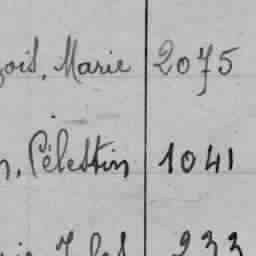 çois, Marie 2075
n, Célestin 1041
233